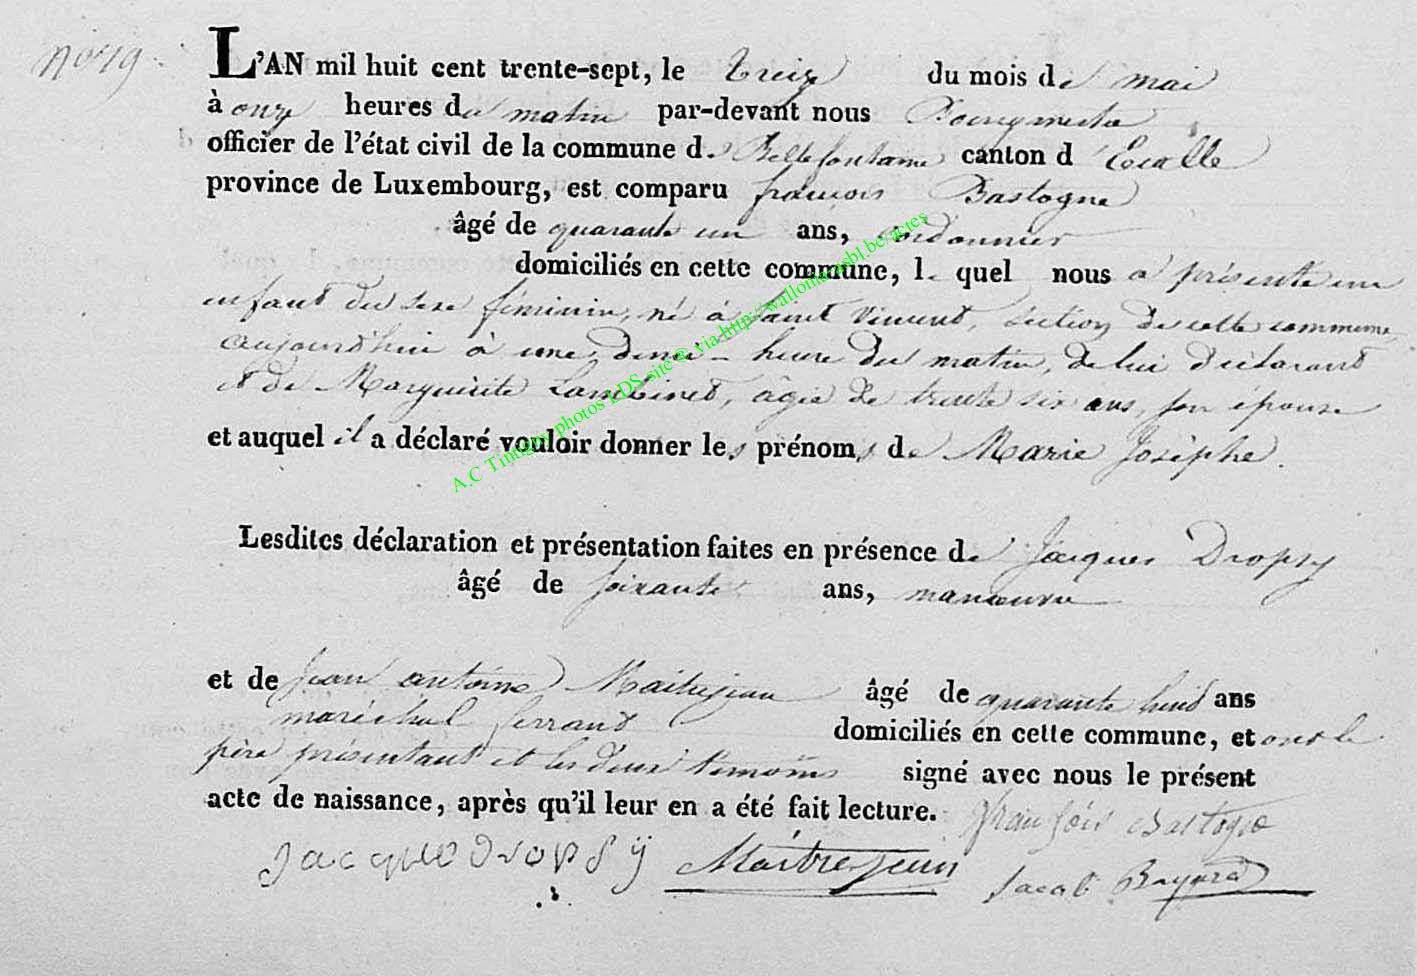 N° 19.
L'AN mil huit cent trente-sept, le treize du mois de mai
à onze heures du matin par-devant nous Bourgmestre
officier de l'état civil de la commune de Bellefontaine canton d'Etalle
province de Luxembourg, est comparu françois Bastogne
âgé de quarante un ans, cordonnier
domiciliés en cette commune, le quel nous a présenté un
enfant du sexe féminin, né à Saint Vincent, section de cette commune
aujourd'hui à une demi-heure du matin, de lui déclarant
et de Marguerite Lambinet, âgée de trente six ans, son épouse
et auquel il a déclaré vouloir donner les prénoms de Marie Josèphe.
Lesdites déclaration et présentation faites en présence de Jacques Dropsy
âgé de soixante ans, manœuvre
et de Jean antoine Maitrejean âgé de quarante huit ans
maréchal ferrant domiciliés en cette commune, et ont le
père présentant et les deux témoins signé avec nous le présent
acte de naissance, après qu'il leur en a été fait lecture. fransois Bastogne
Jacque Dropsÿ Maitrejean Jacob Bayard
A.C Tintigny photos LDS site @ via http://walloniacasbl.be/actes